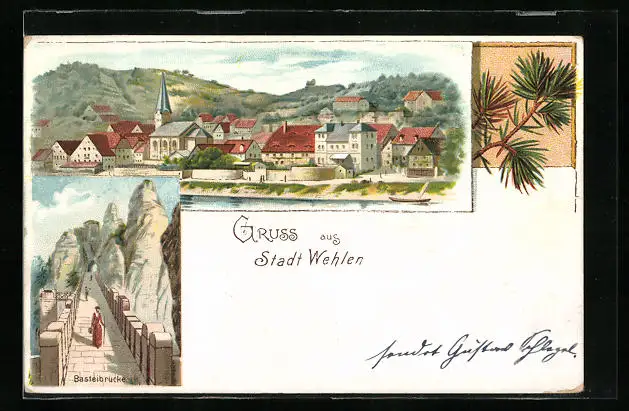 Gruss aus
Stadt Wehlen
Basteibrücke
sendet Gustav Schlegel.